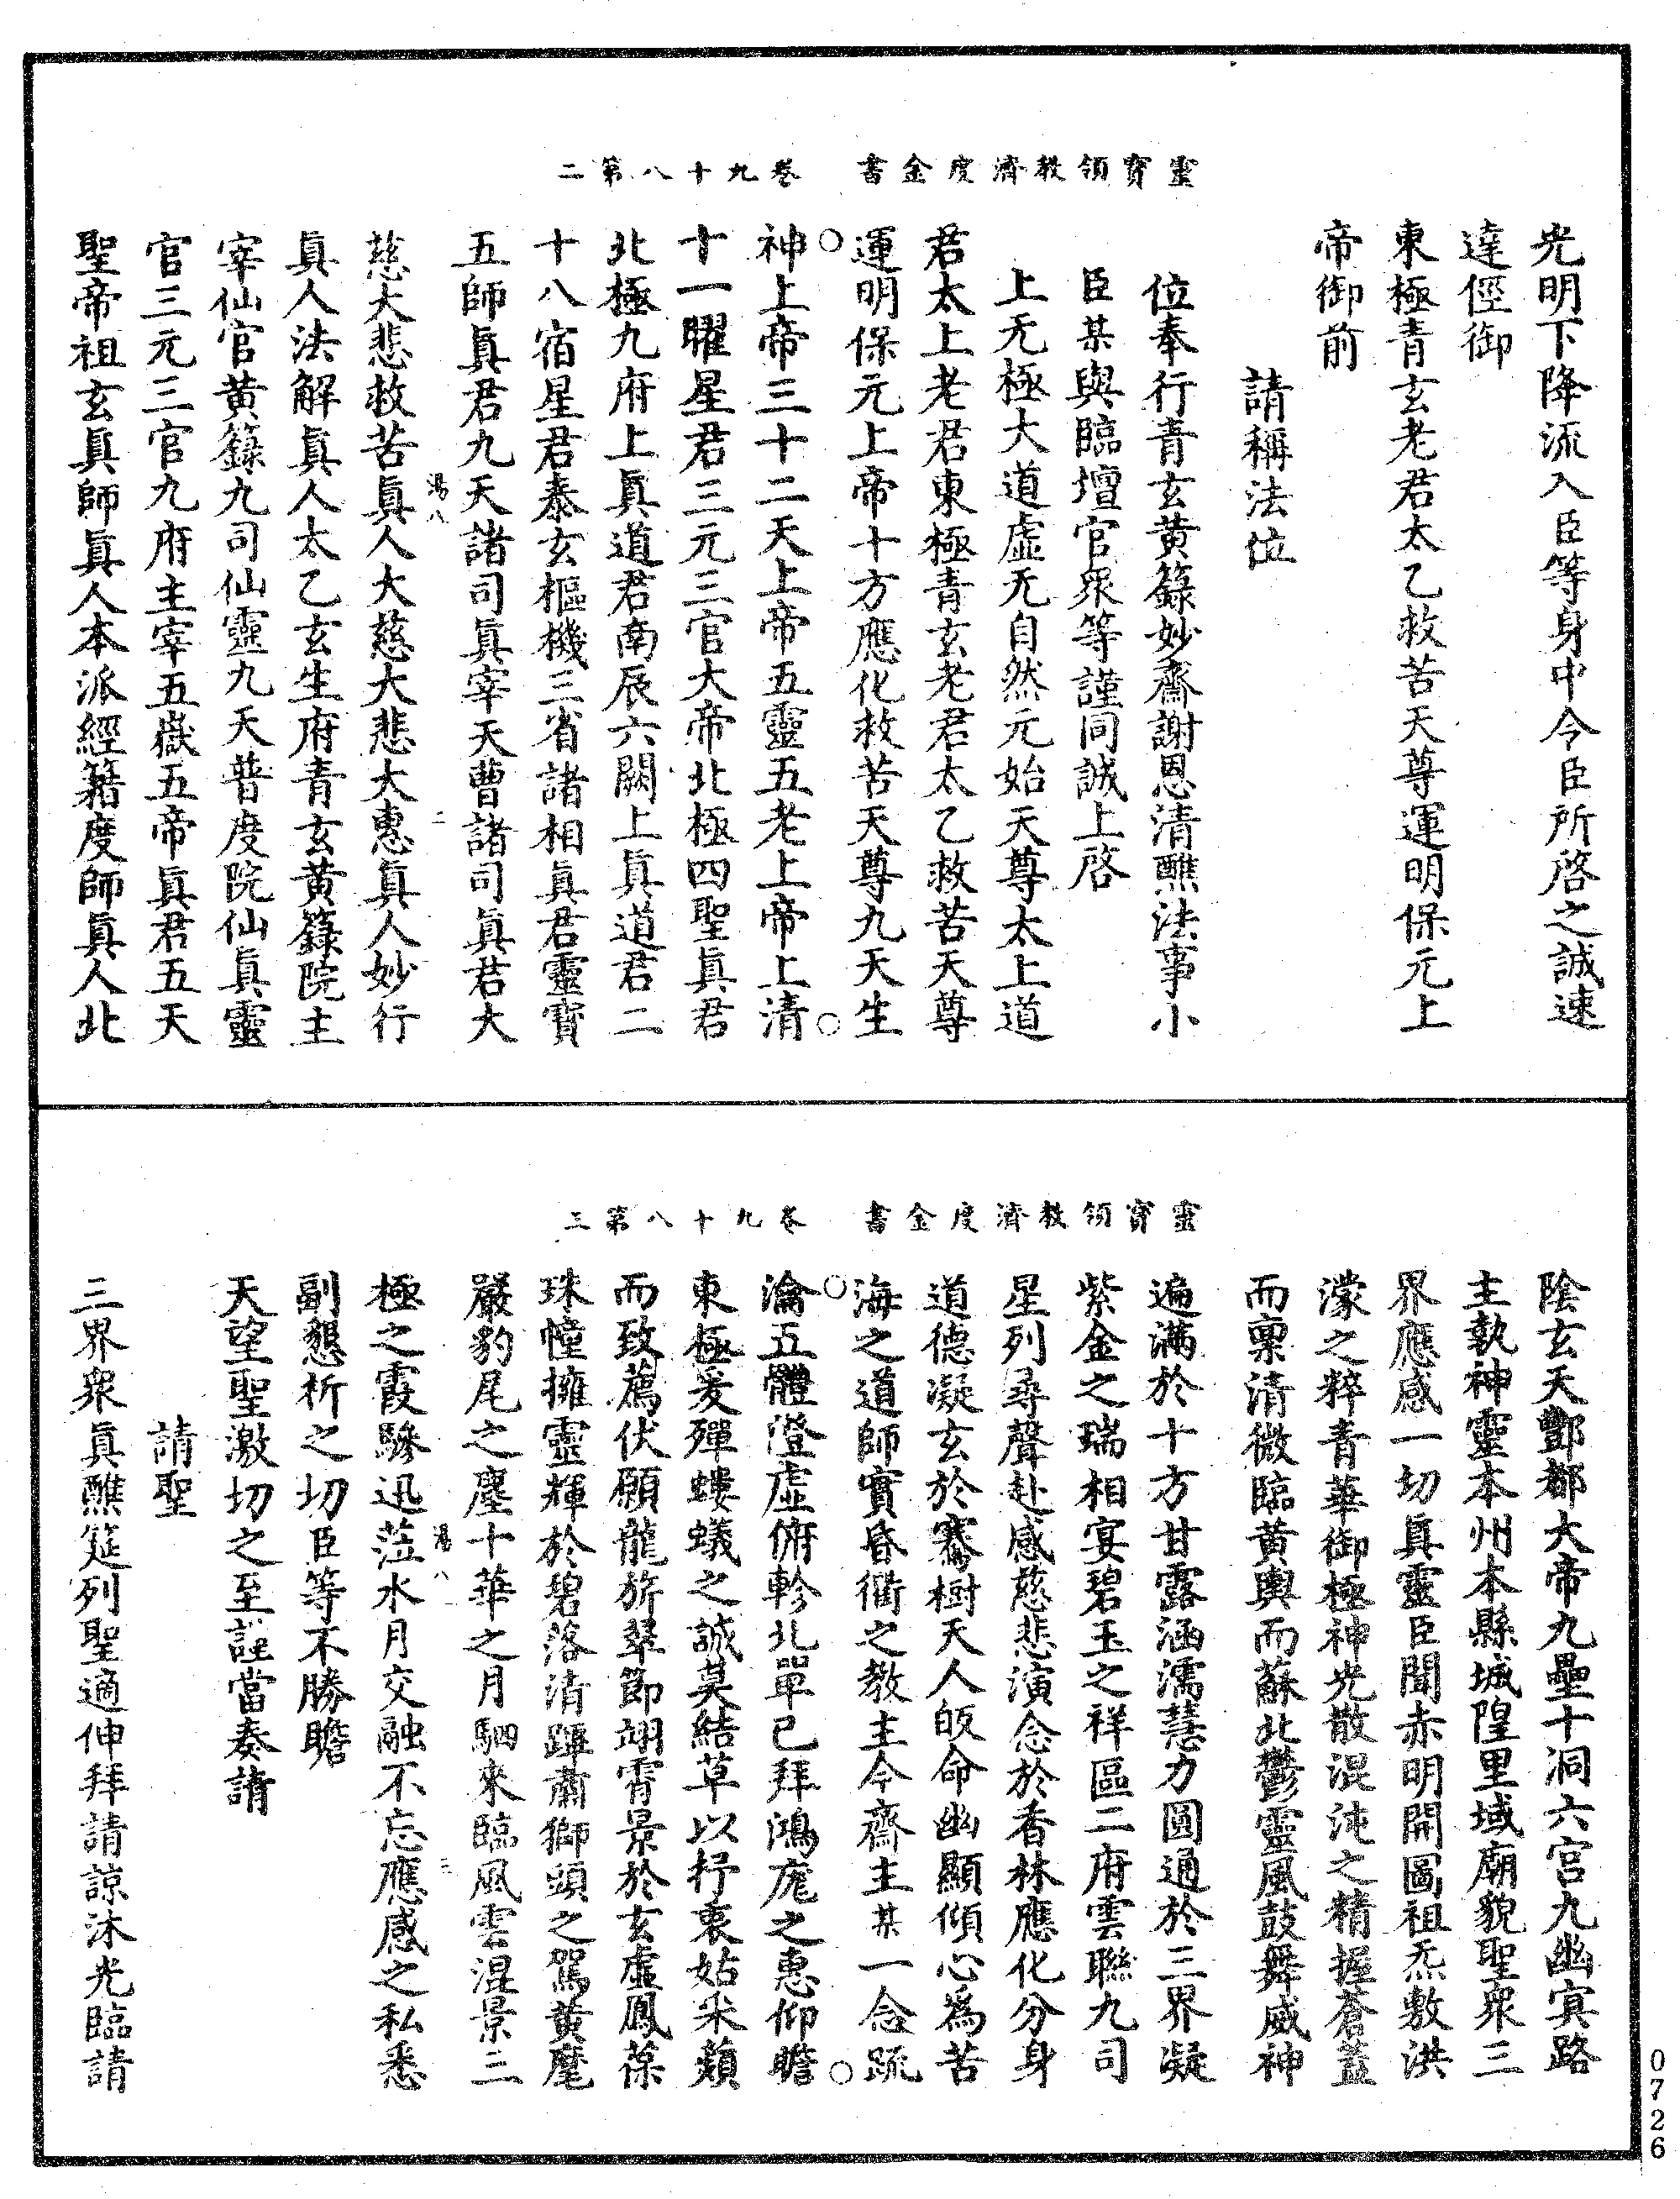 靈寶領教濟度金書　卷九十八第二
光明下降流入臣等身中令臣所啓之誠速
達徑御
東極青玄老君太乙救苦天尊運明保元上
帝御前
請稱法位
位奉行青玄黄籙妙齋謝恩清醮法事小
臣某與臨壇官衆等謹同誠上啓
上无極大道虛无自然元始天尊太上道
君太上老君東極青玄老君太乙救苦天尊
運明保元上帝十方應化救苦天尊九天生
神上帝三十二天上帝五靈五老上帝上清
十一曜星君三元三官大帝北極四聖眞君
北極九府上眞道君南辰六闕上眞道君二
十八宿星君泰玄樞機三省諸相眞君靈寶
五師眞君九天諸司眞宰天曹諸司眞君大
慈大悲救苦眞人大慈大悲大惠眞人妙行
眞人法解眞人太乙玄生府青玄黄籙院主
宰仙官黄籙九司仙靈九天普度院仙眞靈
官三元三官九府主宰五嶽五帝眞君五天
聖帝祖玄眞師眞人本派經籍度師眞人北
湯八　二
靈寶領教濟度金書　卷九十八第三
陰玄天酆都大帝九壘十洞六宫九幽冥路
主執神靈本州本縣城隍里域廟貌聖衆三
界應感一切眞靈臣聞赤明開圖祖炁敷洪
濛之粹青華御極神光散混沌之精握蒼蓋
而稟清微臨黄輿而蘇北鬱靈風鼓舞威神
遍滿於十方甘露涵濡慧力圓通於三界凝
紫金之瑞相宴碧玉之祥區二府雲聯九司
星列尋聲赴感慈悲演念於香林應化分身
道德凝玄於騫樹天人皈命幽顯傾心爲苦
海之道師實昏衢之教主今齋主某一念䟽
瀹五體澄虛俯軫北單已拜鴻庬之惠仰瞻
東極爰殫螻蟻之誠莫結草以抒衷姑采蘋
而致薦伏願龍旂翠節翊霄景於玄虛鳳葆
珠幢擁靈輝於碧落清蹕肅獅頭之駕黄麾
嚴豹尾之塵十華之月駟來臨風雲混景三
極之霞驂迅蒞水月交融不忘應感之私悉
副懇祈之切臣等不勝瞻
天望聖激切之至謹當奏請
請聖
三界衆眞醮筵列聖適伸拜請諒沐光臨請
湯八　三
0726